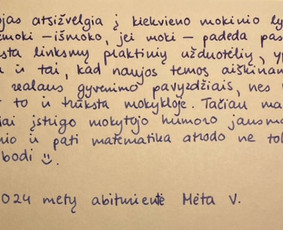 ojas atsižvelgia į kiekvieno mokinio ly
emoki – išmoko, jei moki – padeda pas
sta linksmų plaktinių užduotėlių, yp
a ir tai, kad naujos temos aiškinam
realaus gyvenimo pavyzdžiais, nes
to ir trūksta mokykloje. Tačiau ma
iai įstrigo mokytojo humoro jausma
nio ir pati matematika atrodo ne to
bodi
024 metų abiturientė Mėta V.